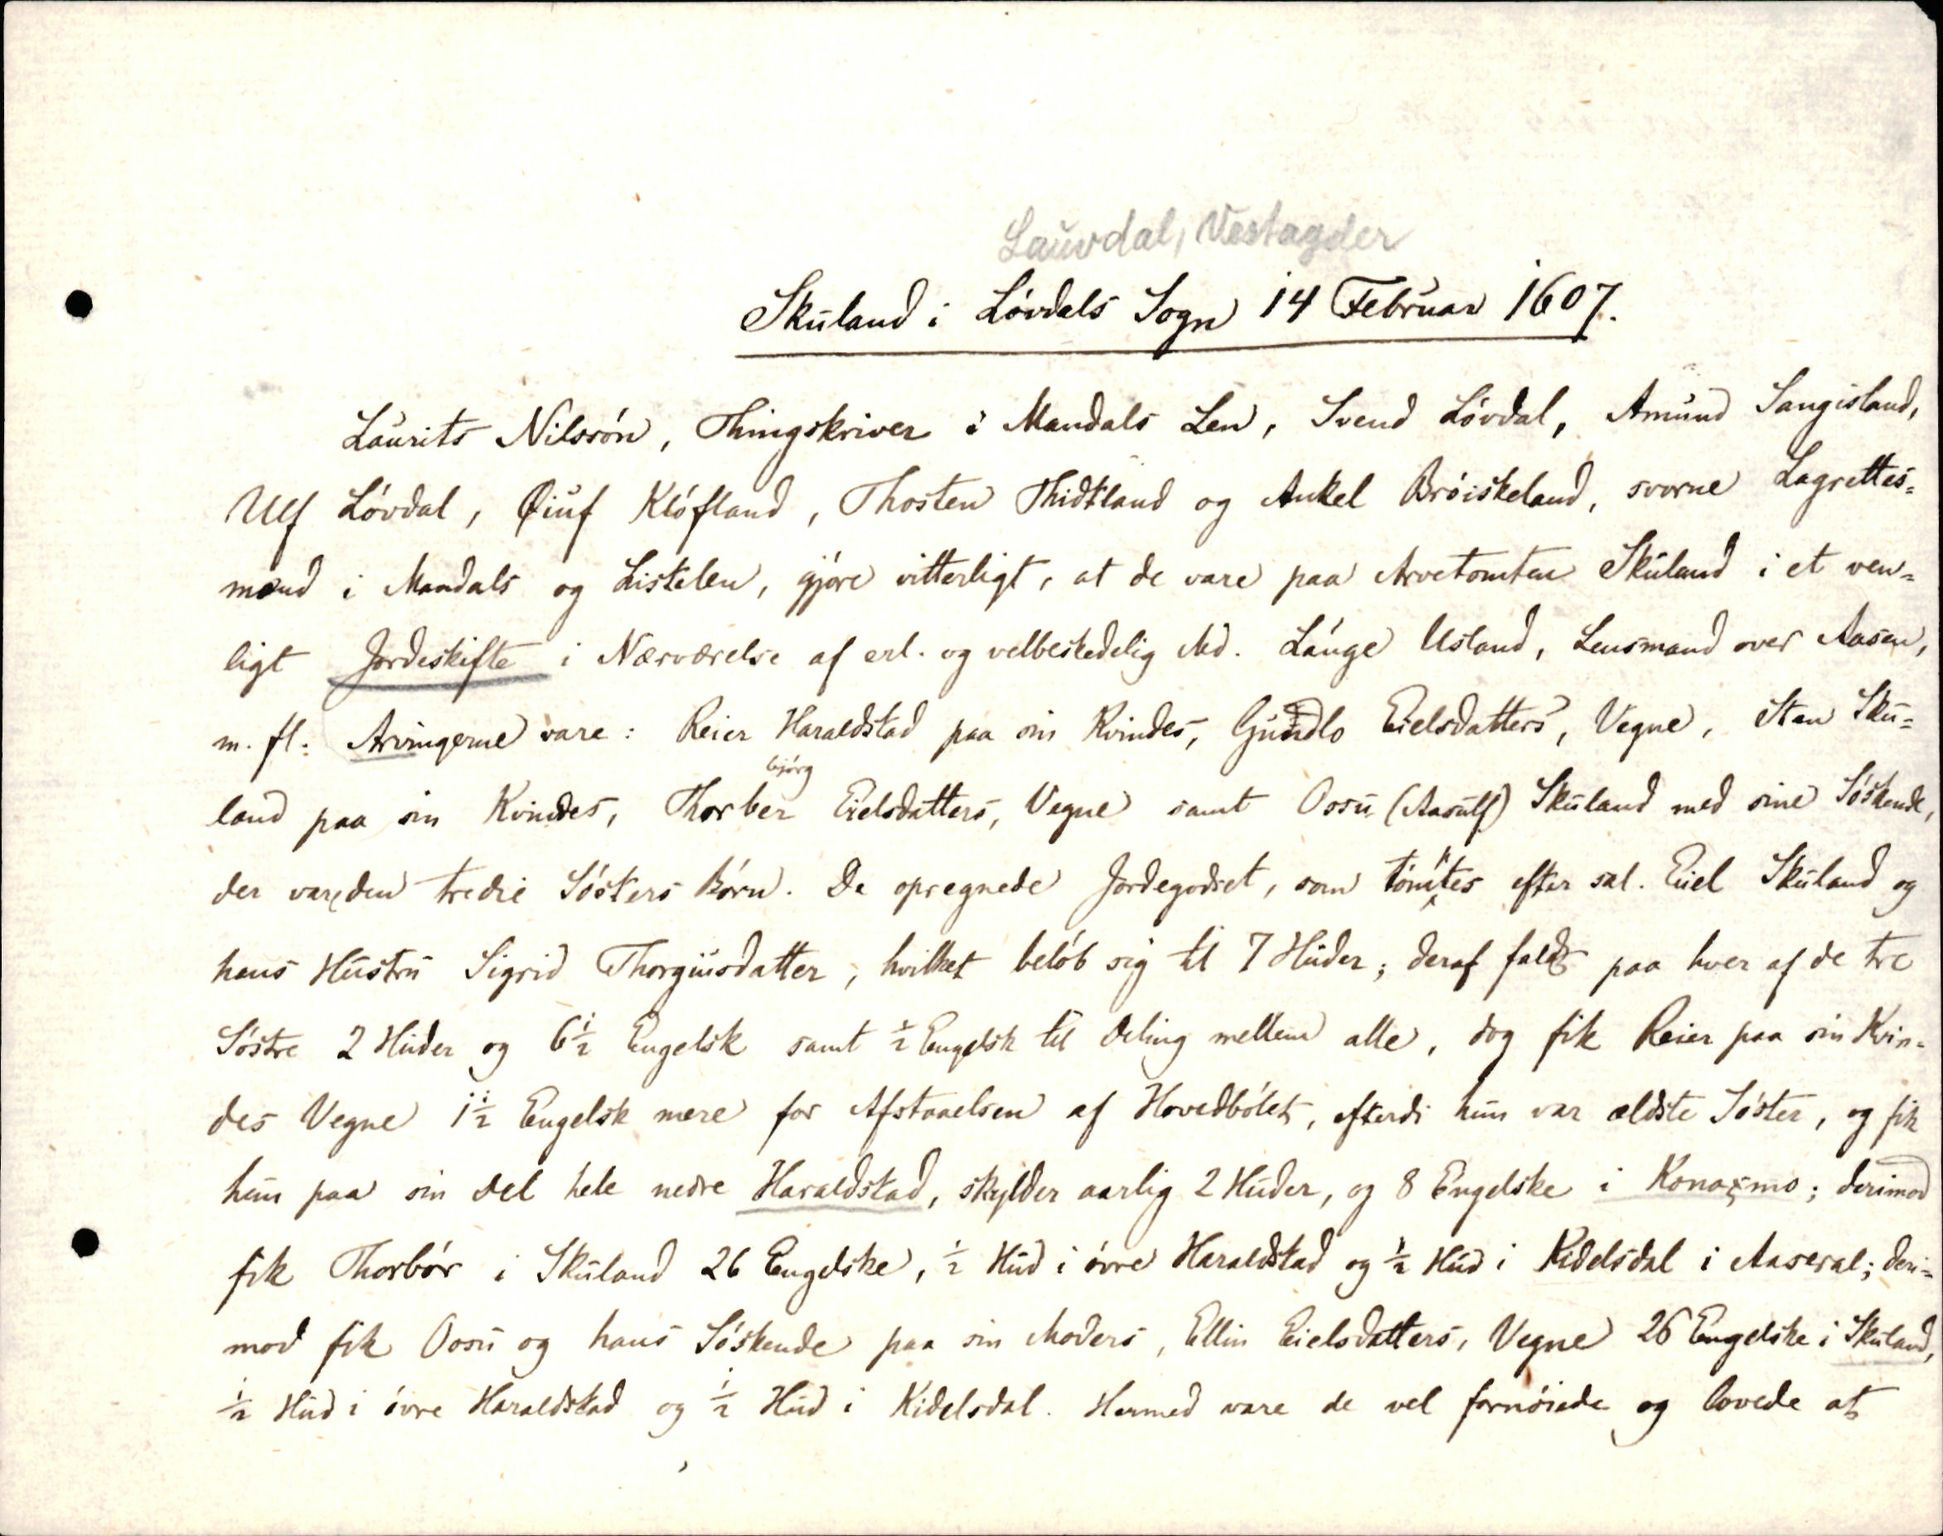 Lauvdal, Vestagder
Skuland i Lóvdals Sogn 14 Februar 1607.
Laurits Nilssón, Thingskriver i Mandals Len, Svend Lóvdal, Amund Sangisland,
Ulf Lóvdal, Øiuf Klófland, Thosten Thidtland og Ankel Bróiskeland, svorne Lagrettes=
mænd i Mandals og Listelen, gjóre vitterligt, at de vare paa Arvetomten Skuland i et ven=
ligt Jordeskifte i Nærværelse af erl. og velbeskedelig Md. Lauge Usland, Lensmand over Aasen,
m. fl. Arvingerne vare: Reier Haraldstad paa sin Kvindes, Gundlo Eielsdatters, Vegne, Sten Sku=
bjórg
land paa sin Kvindes, Thorber Eielsdatters, Vegne samt Oosu (Aasulf) Skuland med sine Sóskende,
der var den tredie Sósters Bórn. De opregnede Jordegodset, som tómtes efter sal. Eiel Skuland og
hans Hustru Sigrid Thorgiusdatter, hvilket belób sig til 7 Huder; deraf faldt paa hver af de tre
Sóstre 2 Huder og 6½ Engelsk samt ½ Engelsk til Deling mellem alle, dog fik Reier paa sin Kvin=
des Vegne 1½ Engelsk mere for Afstaaelsen af Hovedbólet, efterdi hun var ældste Sóster, og fik
hun paa sin Del hele nedre Haraldstad, skylder aarlig 2 Huder, og 8 Engelske i Konasmo; derimod
fik Thorbór i Skuland 26 Engelske, ½ Hud i óvre Haraldstad og ½ Hud i Kidelsdal i Aaseral; deri=
mod fik Oosu og hans Sóskende paa sin Moders, Ellin Eielsdatters, Vegne 26 Engelske i Skuland,
½ Hud i óvre Haraldstad og ½ Hud i Kidelsdal. Hermed vare de vel fornóiede og lovede at